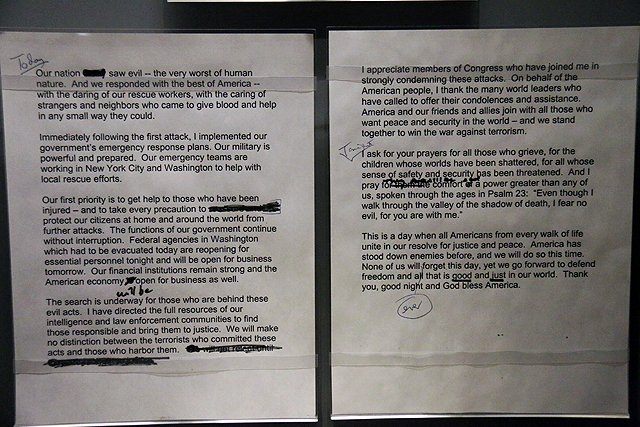 Today
Our nation saw evil -- the very worst of human
nature. And we responded with the best of America --
with the daring of our rescue workers, with the caring of
strangers and neighbors who came to give blood and help
in any small way they could.
Immediately following the first attack, I implemented our
government's emergency response plans. Our military is
powerful and prepared. Our emergency teams are
working in New York City and Washington to help with
local rescue efforts.
Our first priority is to get help to those who have been
injured -- and to take every precaution to
protect our citizens at home and around the world from
further attacks. The functions of our government continue
without interruption. Federal agencies in Washington
which had to be evacuated today are reopening for
essential personnel tonight and will be open for business
tomorrow. Our financial institutions remain strong and the
American economy open for business as well.
will be
The search is underway for those who are behind these
evil acts. I have directed the full resources of our
intelligence and law enforcement communities to find
those responsible and bring them to justice. We will make
no distinction between the terrorists who committed these
acts and those who harbor them.
I appreciate members of Congress who have joined me in
strongly condemning these attacks. On behalf of the
American people, I thank the many world leaders who
have called to offer their condolences and assistance.
America and our friends and allies join with all those who
want peace and security in the world -- and we stand
together to win the war against terrorism.
Tonight
I ask for your prayers for all those who grieve, for the
children whose worlds have been shattered, for all whose
sense of safety and security has been threatened. And I
pray comfort a power greater than any of
us, spoken through the ages in Psalm 23: "Even though I
walk through the valley of the shadow of death, I fear no
evil, for you are with me."
This is a day when all Americans from every walk of life
unite in our resolve for justice and peace. America has
stood down enemies before, and we will do so this time.
None of us will forget this day, yet we go forward to defend
freedom and all that is good and just in our world. Thank
you, good night and God bless America.